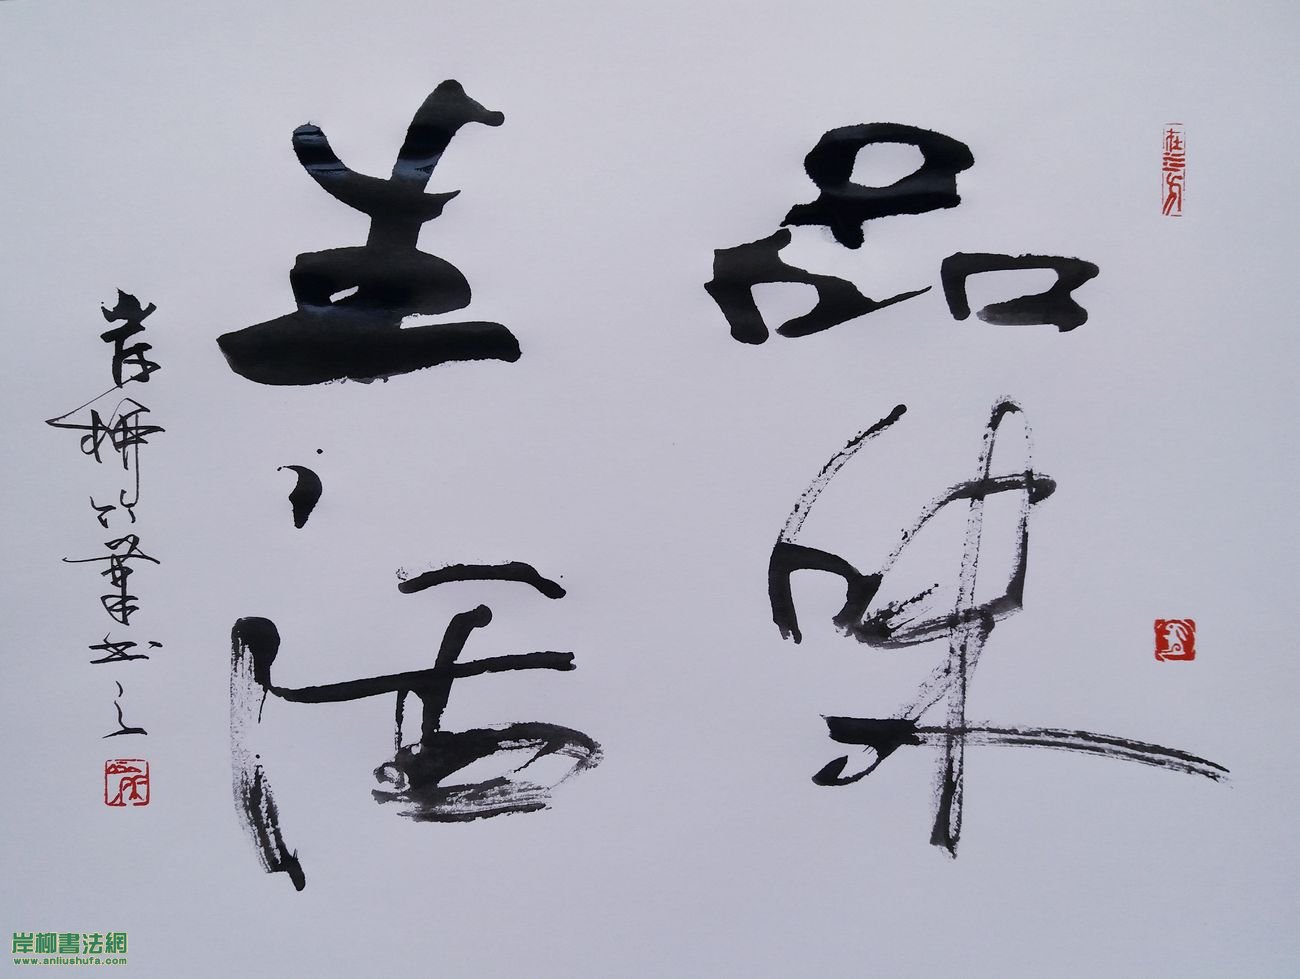 品味
生活
岸柳竹筆書之
岸柳書法網
www.anliushufa.com